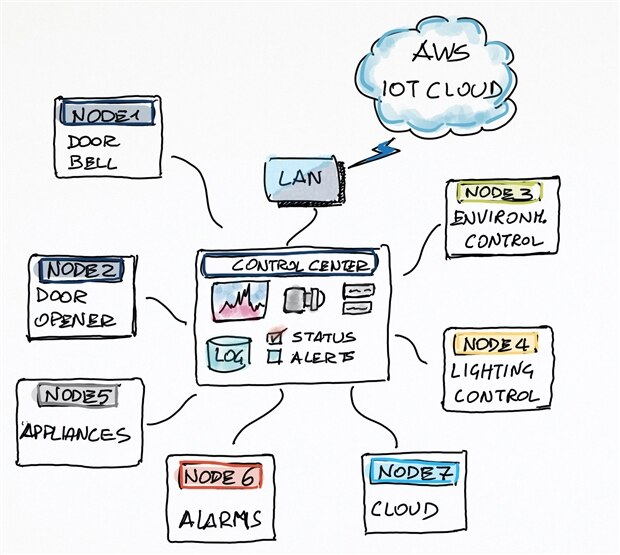 AWS
IOT CLOUD
NODE 1
DOOR
BELL
LAN
NODE 3
ENVIRONM.
CONTROL
NODE 2
DOOR
OPENER
CONTROL CENTER
LOG
STATUS
ALERTS
NODE 4
LIGHTING
CONTROL
NODE 5
APPLIANCES
NODE 6
ALARMS
NODE 7
CLOUD